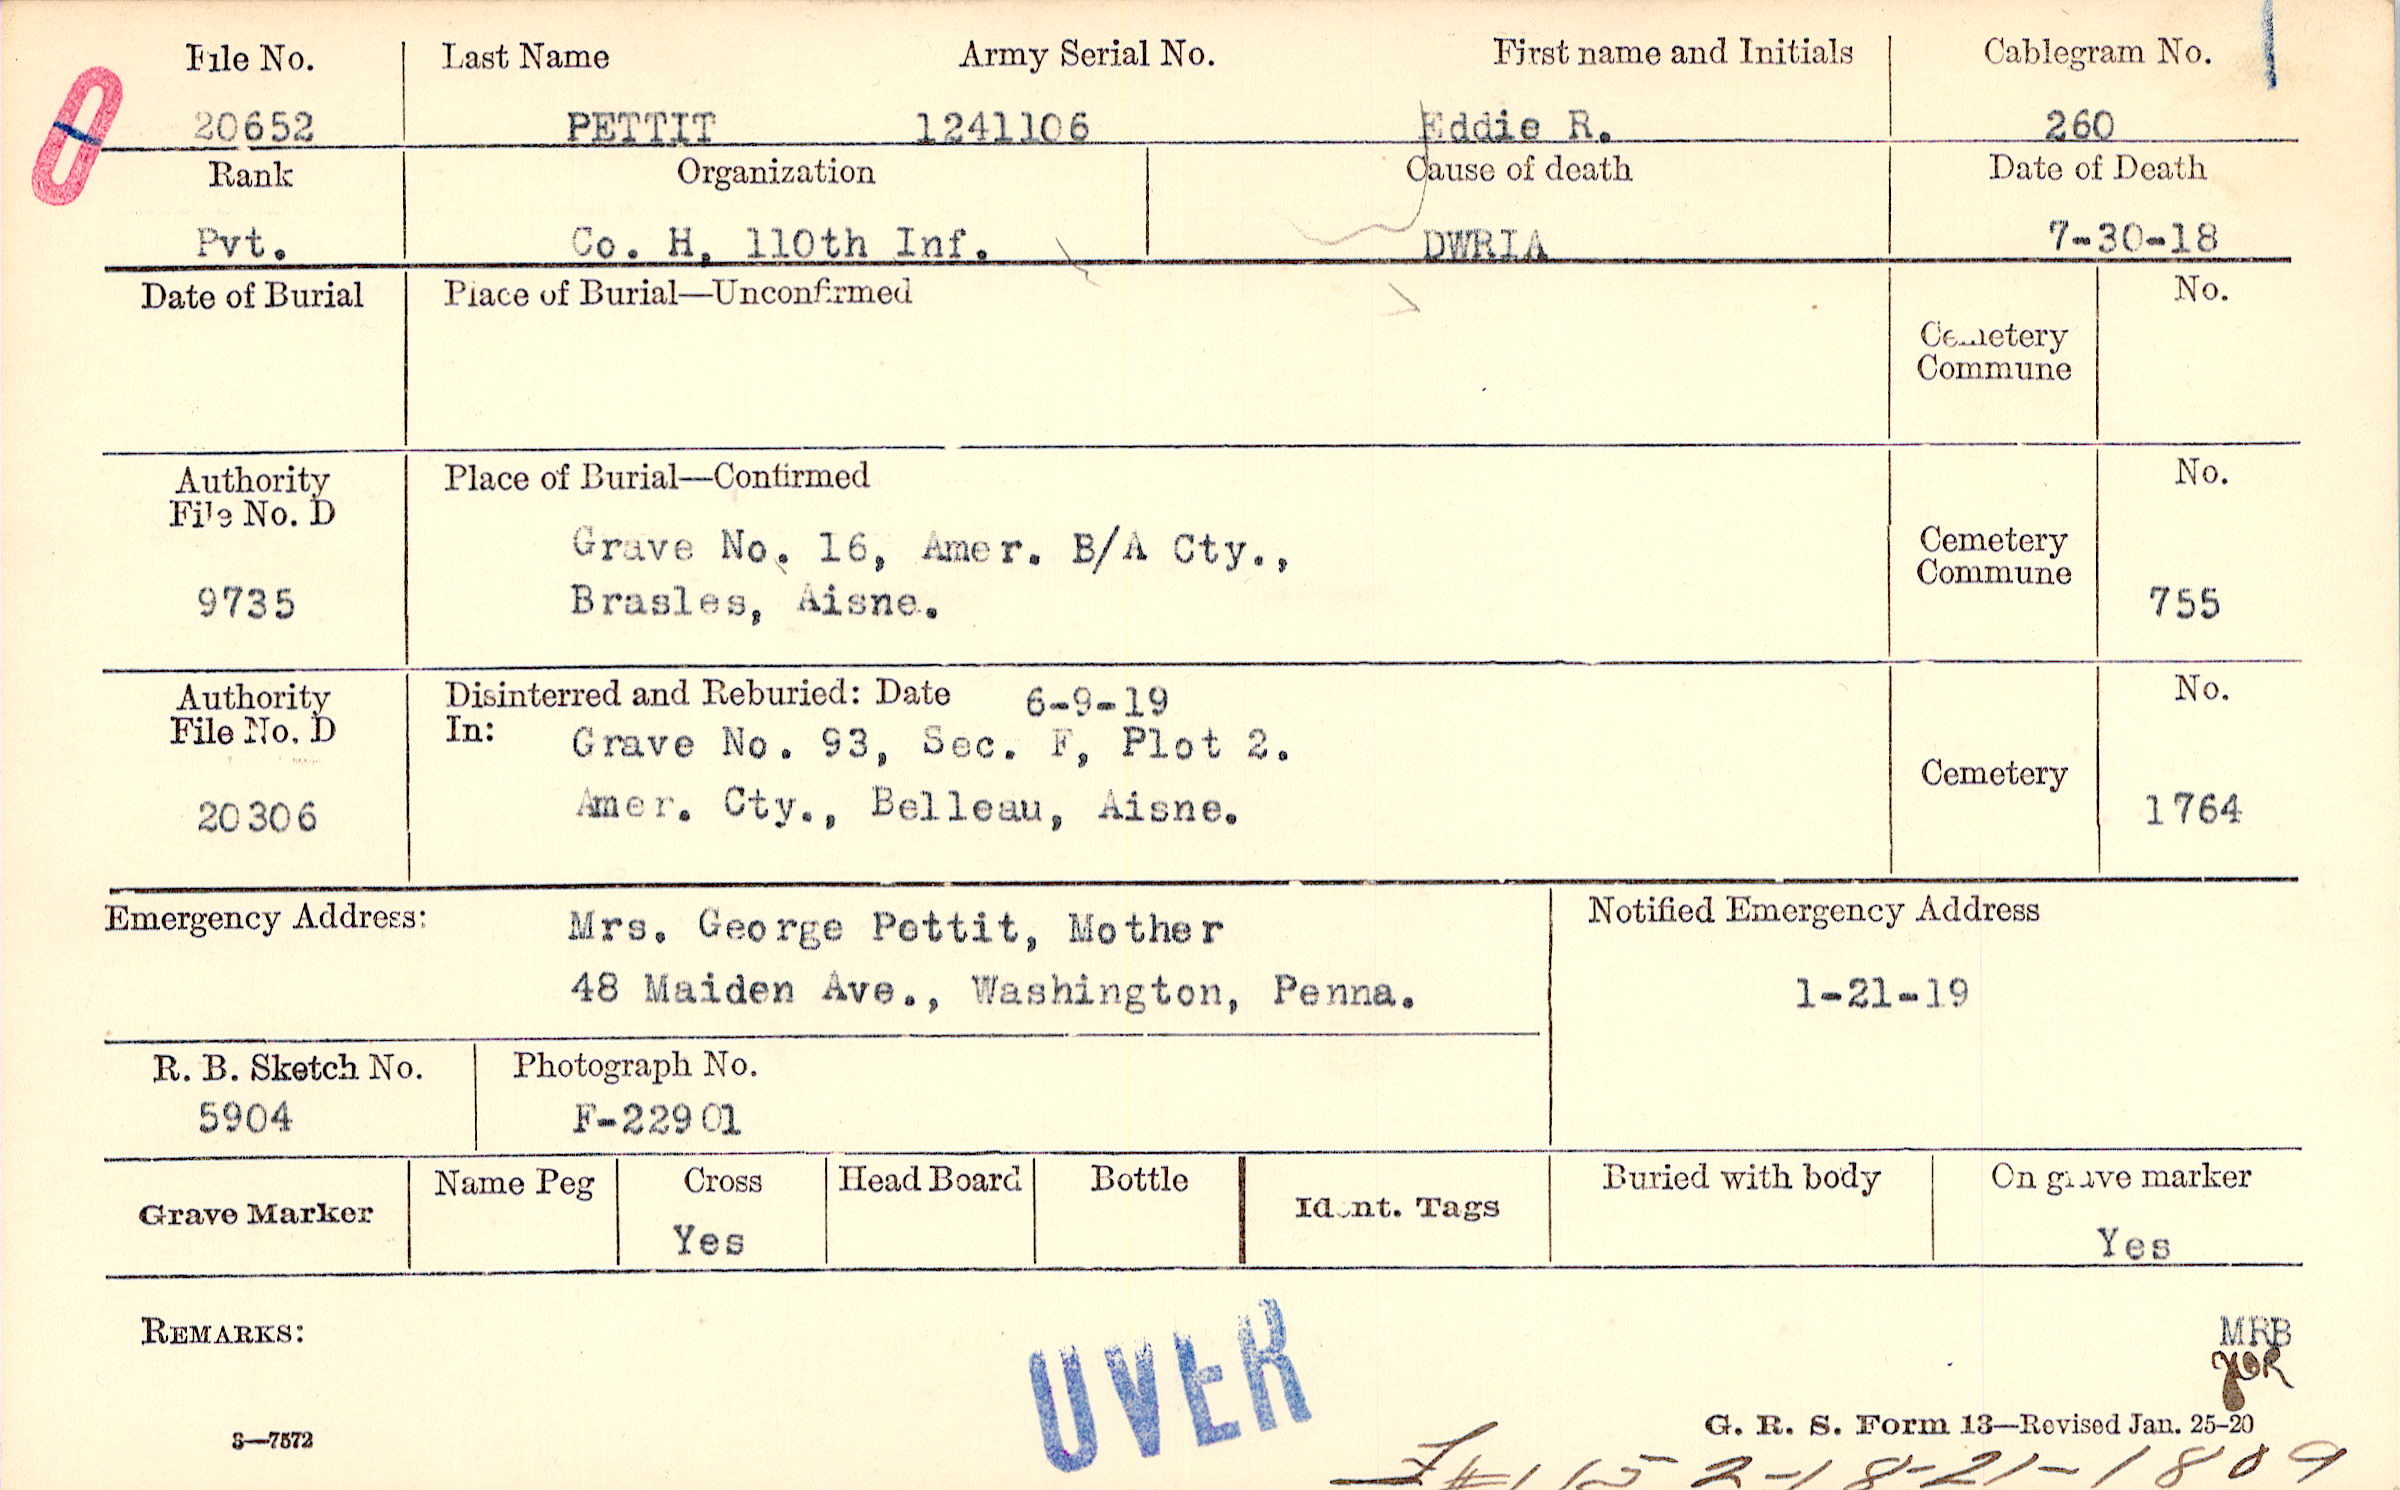 File No. Last Name Army Serial No. First name and Initials Cablegram No.
20652 PETTIT 1241106 Eddie R. 260
Rank Organization Cause of death Date of Death
Pvt. Co. H, 110th Inf. DWRIA 7-30-18
Date of Burial Place of Burial—Unconfirmed No.
Cemetery
Commune
Authority Place of Burial—Confirmed No.
File No. D
Grave No. 16, Amer. B/A Cty., Cemetery
Commune
9735 Brasles, Aisne. 755
Authority Disinterred and Reburied: Date 6-9-19 No.
File No. D In: Grave No. 93, Sec. F, Plot 2.
Cemetery
20306 Amer. Cty., Belleau, Aisne. 1764
Emergency Address: Mrs. George Pettit, Mother Notified Emergency Address
48 Maiden Ave., Washington, Penna. 1-21-19
R. B. Sketch No. Photograph No.
5904 F-22901
Grave Marker Name Peg Cross Head Board Bottle Ident. Tags Buried with body On grave marker
Yes Yes
REMARKS: MRB
OVER
G. R. S. Form 13—Revised Jan. 25-20
S—7572
2-18-21-1809